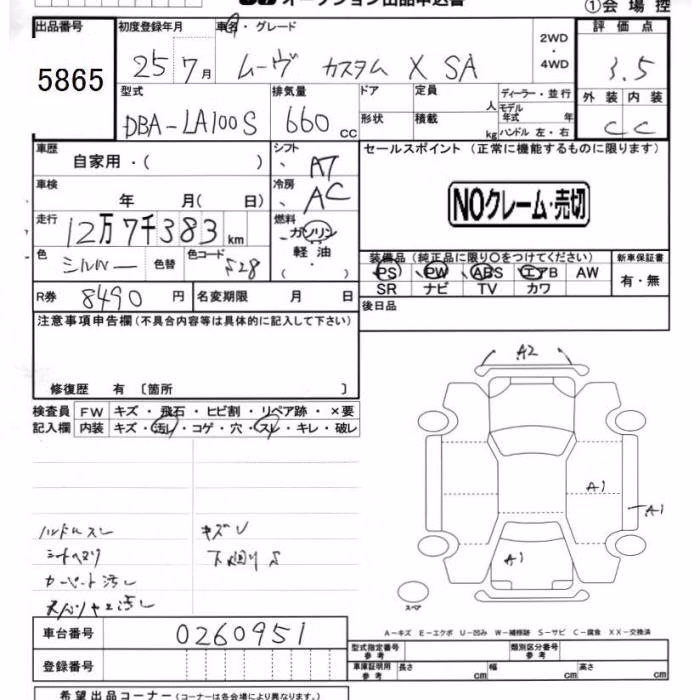 オークション出品申込書 ①会場控
出品番号 初度登録年月 車名・グレード 2WD・4WD 評価点
5865 25年7月 ムーヴ カスタム X SA 3.5
型式 排気量 ドア 定員 人 ディーラー・並行 外装 内装
DBA-LA100S 660cc 形状 積載 kg モデル年式 年 ハンドル 左・右 C C
車歴 自家用・( ) シフト AT セールスポイント(正常に機能するものに限ります)
車検 年 月( 日) 冷房 AC NOクレーム・売切
走行 12万7千383km 燃料 ガソリン 軽油 ・
色 シルバー 色替 色コード S28 装備品(純正品に限り○をつけてください) 新車保証書
PS PW ABS エアB AW 有・無
SR ナビ TV カワ
R券 8490円 名変期限 月 日 後日品
注意事項申告欄(不具合内容等は具体的に記入して下さい)
修復歴 有〔箇所 〕
検査員 FW キズ・飛石・ヒビ割・リペア跡・×要
記入欄 内装 キズ・汚レ・コゲ・穴・スレ・キレ・破レ
A2
A1
A1
A1
ハンドルスレ キズU
シートヘタリ 下廻りS
カーペート汚レ
スペア
車台番号 0260951
登録番号
A-キズ E-エクボ U-凹み W-補修跡 S-サビ C-腐食 XX-交換済
型式指定番号 参考 類別区分番号 参考
車庫証明用 参考 長さ cm 幅 cm 高さ cm
希望出品コーナー(コーナーは各会場により異なります。)